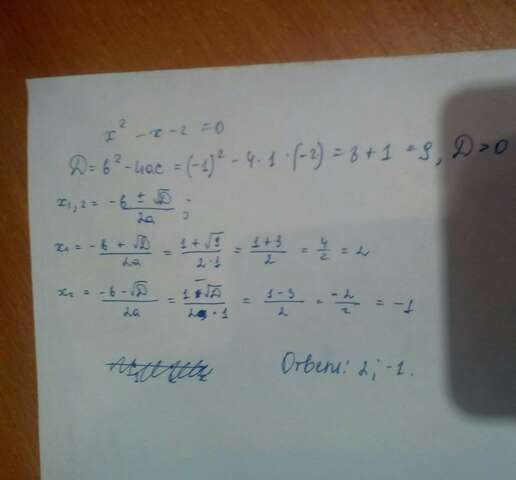 x² - x - 2 = 0
D = b² - 4ac = (-1)² - 4·1·(-2) = 8 + 1 = 9, D > 0
x₁,₂ = (-b ± √D)/2a ;
x₁ = (-b + √D)/2a = (1 + √9)/(2·1) = (1+3)/2 = 4/2 = 2
x₂ = (-b - √D)/2a = (1 - √D)/(2·1) = (1-3)/2 = -2/2 = -1
Ответ: 2; -1.